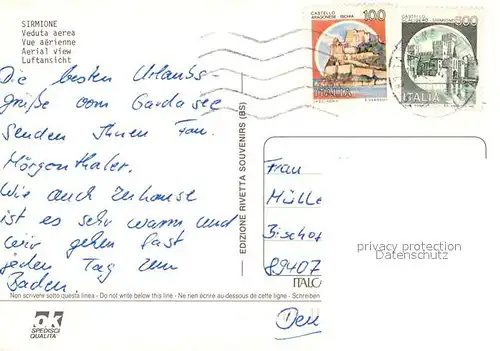 SIRMIONE
Veduta aerea
Vue aérienne
Aerial view
Luftansicht
CASTELLO ARAGONESE ISCHIA 100
ITALIA
CASTELLO
800
ITALIA
Die besten Urlaubs-
grüße vom Gardasee
senden Ihnen Fam.
Morgenthaler.
Wie auch Zuhause
ist es sehr warm und
wir gehen fast
jeden Tag zum
Baden.
EDIZIONE RIVETTA SOUVENIRS (BS)
Frau
Mülle
Bischof
89407
privacy protection
Datenschutz
ITALC
Non scrivere sotto questa linea - Do not write below this line - Ne rien écrire au-dessous de cette ligne - Schreiben
ok
SPEDISCI
QUALITÀ